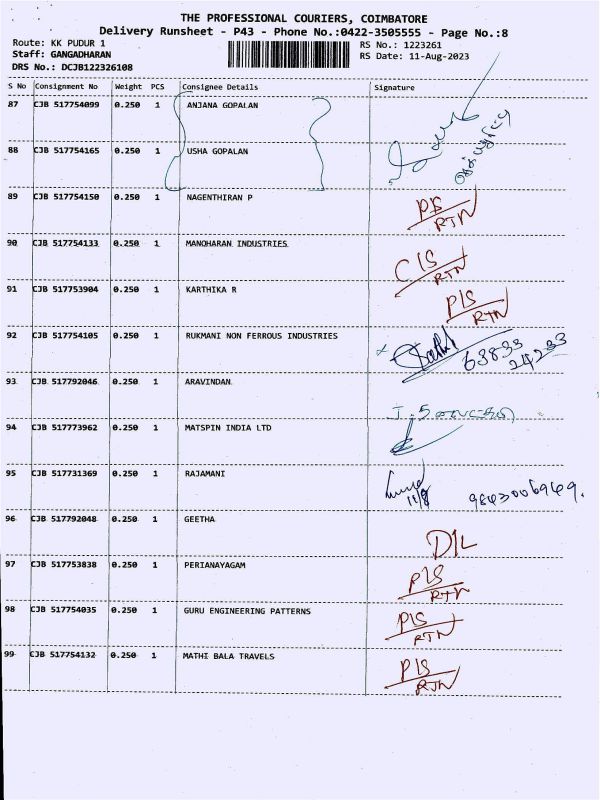 THE PROFESSIONAL COURIERS, COIMBATORE
Delivery Runsheet - P43 - Phone No.:0422-3505555 - Page No.:8
Route: KK PUDUR 1
RS No.: 1223261
Staff: GANGADHARAN
RS Date: 11-Aug-2023
DRS No.: DCJB122326108
S No Consignment No Weight PCS Consignee Details Signature
87 CJB 517754099 0.250 1 ANJANA GOPALAN
88 CJB 517754165 0.250 1 USHA GOPALAN
89 CJB 517754150 0.250 1 NAGENTHIRAN P P/S
RTN
90 CJB 517754133 0.250 1 MANOHARAN INDUSTRIES C/S
RTN
91 CJB 517753904 0.250 1 KARTHIKA R P/S
RTN
92 CJB 517754105 0.250 1 RUKMANI NON FERROUS INDUSTRIES 63833
24233
93 CJB 517792046 0.250 1 ARAVINDAN
94 CJB 517773962 0.250 1 MATSPIN INDIA LTD
95 CJB 517731369 0.250 1 RAJAMANI 11/8 9843006949.
96 CJB 517792048 0.250 1 GEETHA D/L
97 CJB 517753838 0.250 1 PERIANAYAGAM P/S
RTN
98 CJB 517754035 0.250 1 GURU ENGINEERING PATTERNS P/S
RTN
99 CJB 517754132 0.250 1 MATHI BALA TRAVELS P/S
RTN